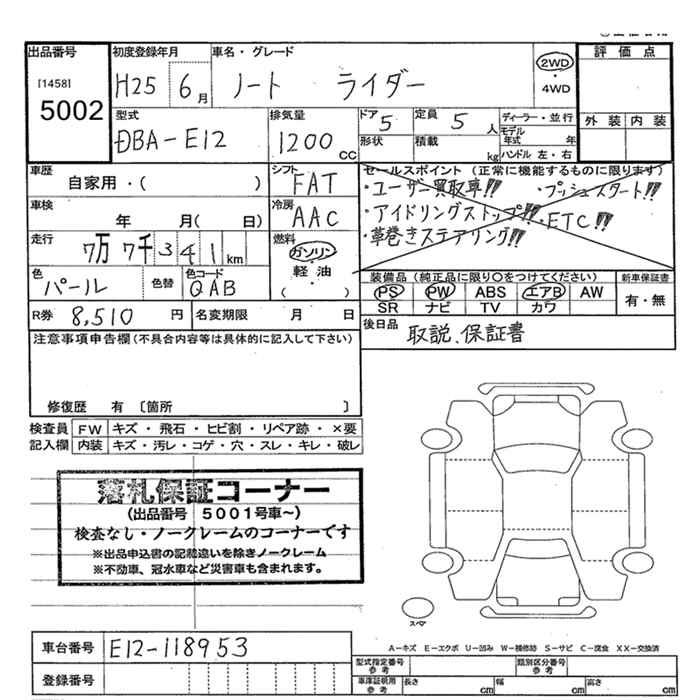 出品番号
[1458]
5002
初度登録年月
H25 6月
車名・グレード
ノート ライダー
2WD
・
4WD
評価点
外装 内装
型式
DBA-E12
排気量
1200 CC
ドア 5
形状
定員 5 人
積載 kg
ディーラー・並行
モデル年式 年
ハンドル 左・右
車歴
自家用・( )
シフト
FAT
車検
年 月( 日)
冷房
AAC
走行
7万7千341 km
燃料
ガソリン
・
軽油
( )
色
パール
色替
色コード
QAB
セールスポイント (正常に機能するものに限ります)
・ユーザー買取車!! ・プッシュスタート!!
・アイドリングストップ!!・ETC!!
・革巻きステアリング!!
装備品 (純正品に限り○をつけてください)
PS PW ABS エアB AW
SR ナビ TV カワ
新車保証書
有・無
R券 8,510 円
名変期限 月 日
後日品
取説、保証書
注意事項申告欄(不具合内容等は具体的に記入して下さい)
修復歴 有 〔箇所 〕
検査員 FW キズ・飛石・ヒビ割・リペア跡・×要
記入欄 内装 キズ・汚レ・コゲ・穴・スレ・キレ・破レ
落札保証コーナー
(出品番号 5001号車~)
検査なし・ノークレームのコーナーです
※出品申込書の記載違いを除きノークレーム
※不動車、冠水車など災害車も含まれます。
スペア
A-キズ E-エクボ U-凹み W-補修跡 S-サビ C-腐食 XX-交換済
車台番号 E12-118953
登録番号
型式指定番号
参考
類別区分番号
参考
車庫証明用
参考
長さ cm
幅 cm
高さ cm